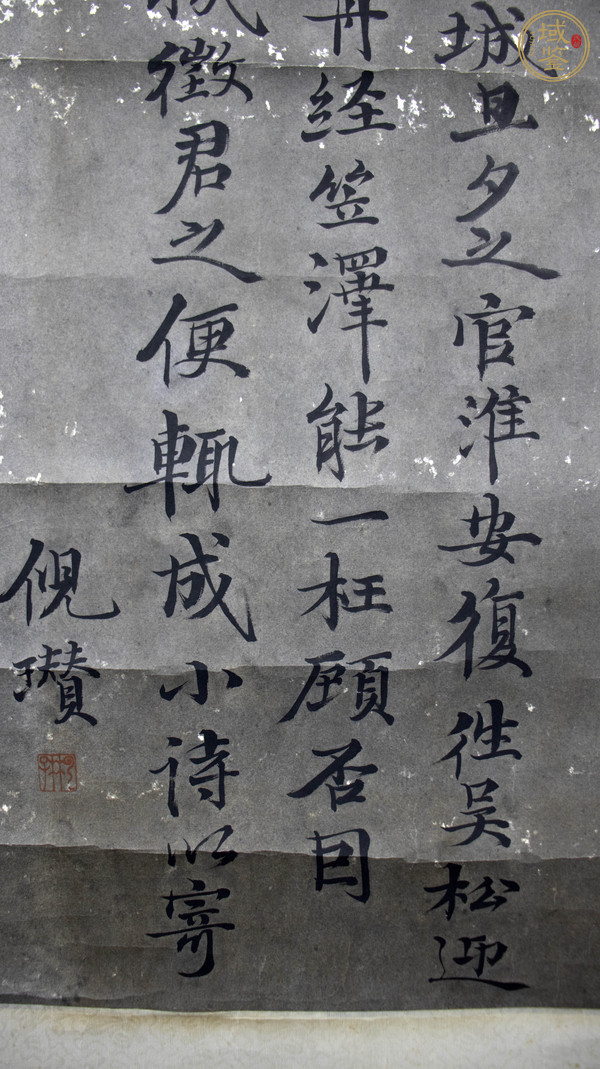 城旦夕之官淮安復徃吳松迎
舟經笠澤能一枉顧否因
徵君之便輒成小詩以寄
倪瓚
域鑒